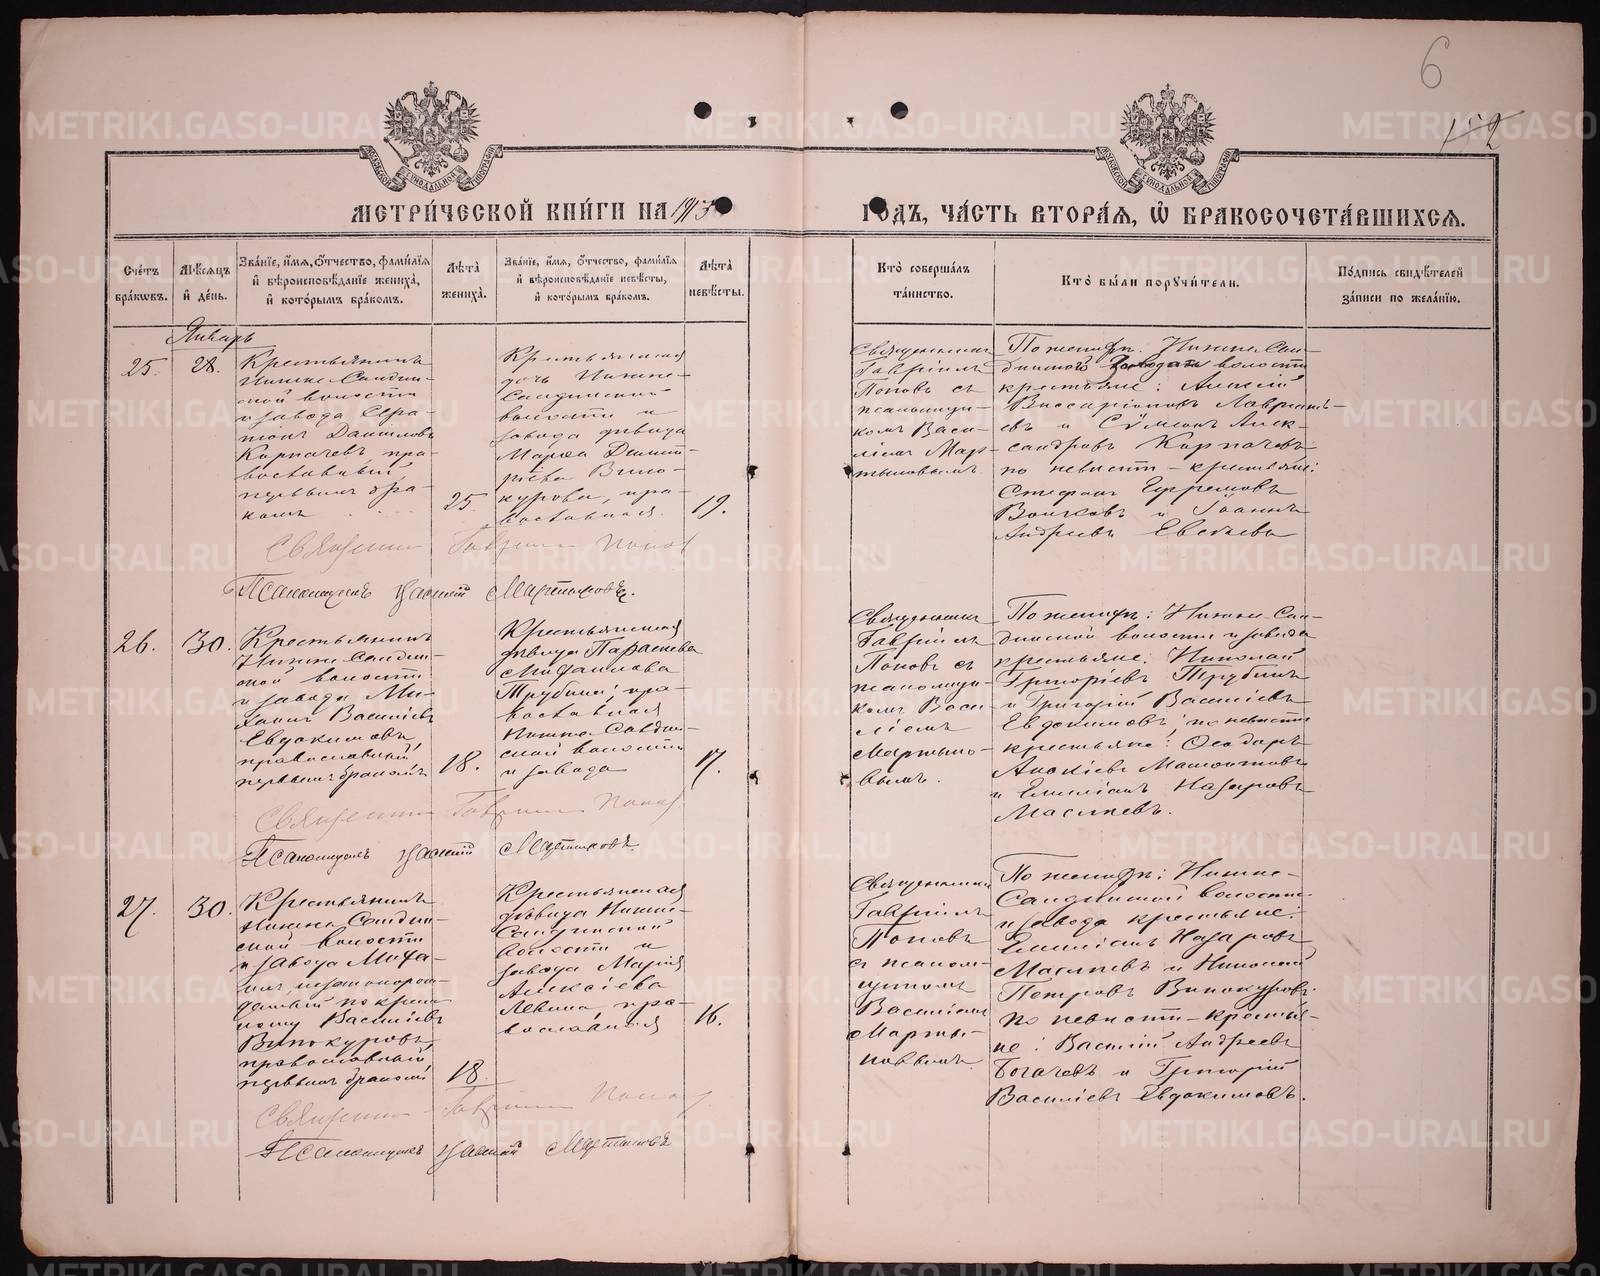 6
152
МЕТРИ́ЧЕСКОЙ КНИ́ГИ НА 1913
ГОДЪ, ЧА́СТЬ ВТОРА́Я, Ѡ БРАКОСОЧЕТА́ВШИХСЯ.
Сче́тъ бра́ковъ.
Мѣ́сяцъ и́ де́нь.
Зва́нїе, и́мя, о́тчество, фами́лїя и́ вѣроисповѣ́данїе жениха̀, и́ кото́рымъ бра́комъ.
Лѣ́та жениха̀.
Зва́нїе, и́мя, о́тчество, фами́лїя и́ вѣроисповѣ́данїе невѣ́сты, и́ кото́рымъ бра́комъ.
Лѣ́та невѣ́сты.
Кто̀ соверша́лъ та́инство.
Кто̀ бы́ли поручи́тели.
По́дпись свидѣ́телей за́писи по жела́нїю.
Январь
25.
28.
Крестьянинъ
Нижне-Салдин-
ской волости
и завода Сера-
піонъ Даниловъ
Карпачевъ, пра-
вославный
первымъ бра-
комъ
25.
Крестьянская
дочь Нижне-
Салдинской
волости и
завода дѣвица
Марѳа Димит-
ріева Вино-
курова, пра-
вославная.
19.
Священникъ
Гавріилъ
Поповъ съ
псаломщи-
комъ Васи-
ліемъ Мар-
тыновымъ
По женихѣ: Нижне-Сал-
динской волости
крестьяне: Алексій
Виссаріоновъ Лаврентье-
въ и Сѵмеонъ Алек-
сандровъ Карпачевъ
по невѣстѣ - крестьяне:
Стефанъ Ефремовъ
Волковъ и Іоаннъ
Андреевъ Евсѣевъ
Священникъ Гавріилъ Поповъ
Псаломщикъ Василій Мартыновъ.
26.
30.
Крестьянинъ
Нижне-Салдин-
ской волости
и завода Ми-
хаилъ Василіевъ
Евдокимовъ
православный
первымъ бракомъ
18.
Крестьянская
дѣвица Параскева
Михаилова
Трубина, пра-
вославная
Нижне-Салдин-
ской волости
и завода
17.
Священникъ
Гавріилъ
Поповъ съ
псаломщи-
комъ Васи-
ліемъ
Мартыно-
вымъ.
По женихѣ: Нижне-Сал-
динской волости и завода
крестьяне: Николай
Григоріевъ Трубинъ
и Григорій Василіевъ
Евдокимовъ; по невѣстѣ
крестьяне: Ѳеодоръ
Алексіевъ Мамонтовъ
и Емиліанъ Назаровъ
Масляевъ.
Священникъ Гавріилъ Поповъ
Псаломщикъ Василій Мартыновъ
27.
30.
Крестьянинъ
Нижне-Салдин-
ской волости
и завода Миха-
илъ,
по крест-
ному Василіевъ
Винокуровъ,
православный
первымъ бракомъ
18
Крестьянская
дѣвица Нижне-
Салдинской
волости и
завода Марія
Алексіева
Левина, пра-
вославная
16.
Священникъ
Гавріилъ
Поповъ
съ псалом-
щикомъ
Василіемъ
Марты-
новымъ.
По женихѣ: Нижне-
Салдинской волости
и завода крестьяне:
Емиліанъ Назаровъ
Масляевъ и Николай
Петровъ Винокуровъ.
По невѣстѣ - крестья-
не: Василій Андреевъ
Богачевъ и Григорій
Василіевъ Евдокимовъ.
Священникъ Гавріилъ Поповъ
Псаломщикъ Василій Мартыновъ
METRIKI.GASO-URAL.RU